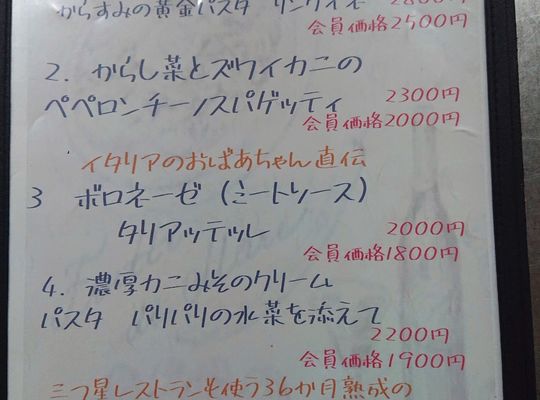 からすみの黄金パスタ リングイネ 2800円
会員価格2500円
2. からし菜とズワイカニの
ペペロンチーノスパゲッティ 2300円
会員価格2000円
イタリアのおばあちゃん直伝
3 ボロネーゼ(ミートソース)
タリアッテッレ 2000円
会員価格1800円
4. 濃厚カニみそのクリーム
パスタ パリパリの水菜を添えて
2200円
会員価格1900円
三つ星レストランも使う36か月熟成の